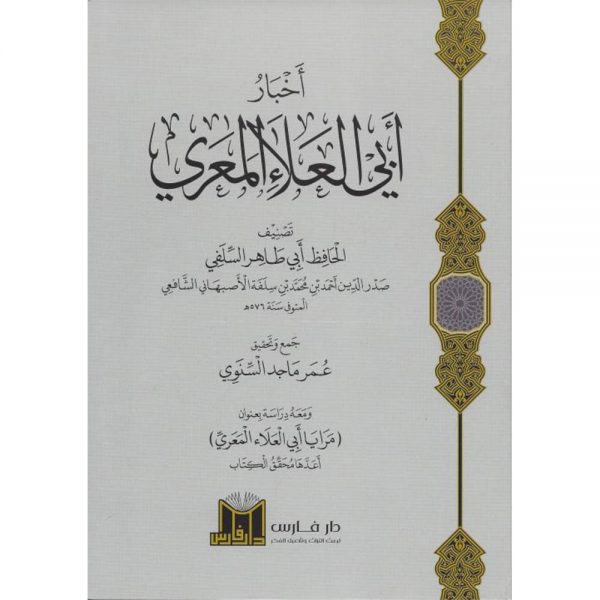 أَخْبَارُ
أَبِي العَلَاءِ المَعَرِّي
تَصْنِيف
الْحَافِظ أَبِي طَاهِر السِّلَفِي
صَدْر الدِّين أَحْمَد بْن مُحَمَّد بْن سِلَفَة الْأَصْبِهَانِي الشَّافِعِي
المتوفى سَنَة ٥٧٦هـ
جَمع وَتَحْقِيق
عُمَر مَاجِد السِّنَوِي
وَمَعَهُ دِرَاسَة بِعنوان
(مَرَايَا أَبِي الْعَلَاء الْمَعَرِّي)
أَعَدَّهَا مُحَقِّقُ الْكِتَاب
دار فارس
لبعث التراث وتأصيل الفكر
دار فارس